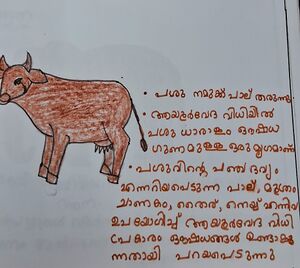 • പശു നമുക്ക് പാല് തരുന്നു.
• ആയുർവേദ വിധിയിൽ
പശു ധാരാളം ഔഷധ
ഗുണമുള്ള ഒരു മൃഗമാണ്
• പശുവിന്റെ പഞ്ച ദ്രവ്യം
എന്നറിയപ്പെടുന്ന പാല്, മൂത്രം
ചാണകം, തൈര്, നെയ്യ് എന്നിവ
ഉപയോഗിച്ച് ആയുർവേദ വിധി
പ്രകാരം ഔഷധങ്ങൾ ഉണ്ടാക്കു
ന്നതായി പറയപ്പെടുന്നു